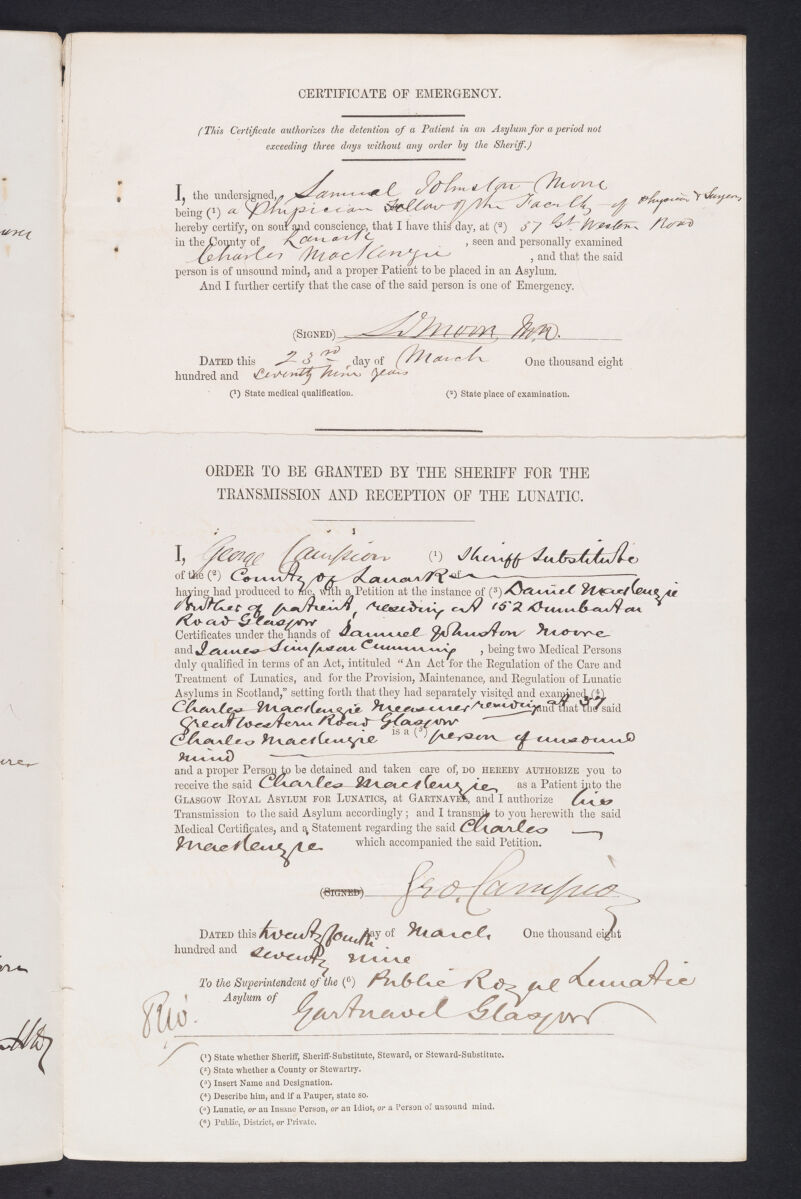 CERTIFICATE OF EMERGENCY.
(This Certificate authorizes the detention of a Patient in an Asylum for a period not
exceeding three days without any order by the Sheriff.)
I, the undersigned, Samuel Johnston Moore
being (1) a Physician Fellow of the Faculty of Physicians & Surgeons
hereby certify, on soul and conscience, that I have this day, at (2) 57 Gt Western Road
in the County of Lanark, seen and personally examined
Charles MacKenzie, and that the said
person is of unsound mind, and a proper Patient to be placed in an Asylum.
And I further certify that the case of the said person is one of Emergency.
(SIGNED) S J Moore, M.D.
DATED this 23rd day of March One thousand eight
hundred and seventy nine years
(1) State medical qualification. (2) State place of examination.
ORDER TO BE GRANTED BY THE SHERIFF FOR THE
TRANSMISSION AND RECEPTION OF THE LUNATIC.
I, George Campion (1) Sheriff Substitute
of the (2) County of Lanark
having had produced to me, with a Petition at the instance of (3) Daniel MacKenzie
Brother of patient, residing at 152 Dumbarton
Road Glasgow
Certificates under the hands of Samuel Johnston Moore
and James Simpson Cumming, being two Medical Persons
duly qualified in terms of an Act, intituled “An Act for the Regulation of the Care and
Treatment of Lunatics, and for the Provision, Maintenance, and Regulation of Lunatic
Asylums in Scotland,” setting forth that they had separately visited and examined (4)
Charles MacKenzie Measurer residing at 57 and that the said
Great Western Road Glasgow
Charles MacKenzie is a (5) person of unsound
mind
and a proper Person to be detained and taken care of, DO HEREBY AUTHORIZE you to
receive the said Charles MacKenzie as a Patient into the
GLASGOW ROYAL ASYLUM FOR LUNATICS, AT GARTNAVEL, and I authorize his
Transmission to the said Asylum accordingly; and I transmit to you herewith the said
Medical Certificates, and a Statement regarding the said Charles
MacKenzie which accompanied the said Petition.
(SIGNED) Geo. Campion
DATED this twenty fourth day of March One thousand eight
hundred and seventy nine
To the Superintendent of the (6) Public Royal Lunatic
Asylum of Gartnavel Glasgow
(1) State whether Sheriff, Sheriff-Substitute, Steward, or Steward-Substitute.
(2) State whether a County or Stewartry.
(3) Insert Name and Designation.
(4) Describe him, and if a Pauper, state so.
(5) Lunatic, or an Insane Person, or an Idiot, or a Person of unsound mind.
(6) Public, District, or Private.